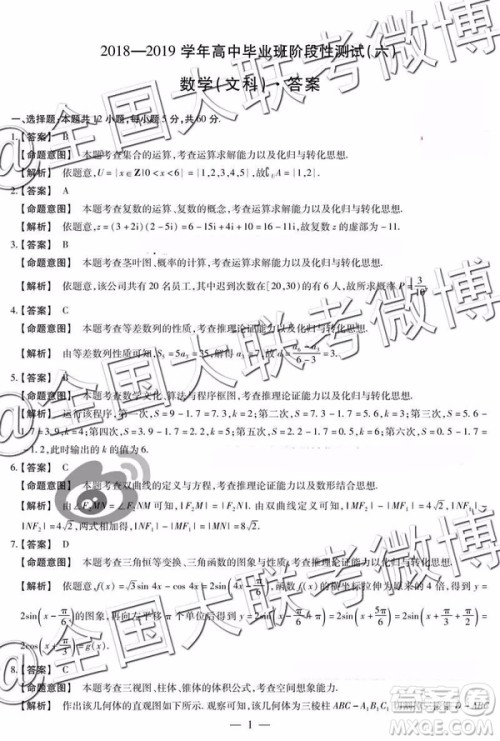 2018—2019 学年高中毕业班阶段性测试(六)
数学(文科)·答案
一、选择题:本题共12小题,每小题5分,共60分.
1.【答案】 B
【命题意图】 本题考查集合的运算,考查运算求解能力以及化归与转化思想.
【解析】 依题意,U={x∈Z|0<x<6}={1,2,3,4,5},故 A={1,2}.
2.【答案】 A
【命题意图】 本题考查复数的运算、复数的概念,考查运算求解能力以及化归与转化思想.
【解析】 依题意,z=(3+2i)(2-5i)=6-15i+4i+10=16-11i,故复数z的虚部为-11.
3.【答案】 B
【命题意图】 本题考查茎叶图、概率的计算,考查运算求解能力以及化归与转化思想.
【解析】 依题意,该公司共有20名员工,其中迟到次数在[20,30)的有6个,故所求概率P=3/10.
4.【答案】 C
【命题意图】 本题考查等差数列的性质,考查推理论证能力以及化归与转化思想.
【解析】 由等差数列性质可知,S₅=5a₃=35,解得a₃=7,故d=
5.【答案】
【命题意图】 本题考查数学文化、算法与程序框图,考查推理论证能力以及化归与转化思想.
【解析】 运行该程序,第一次,S=9-1.7=7.3,k=2;第二次,S=7.3-1.7=5.6,k=3;第三次,S=5.6-
1.7=3.9,k=4;第四次,S=3.9-1.7=2.2,k=5;第五次,S=2.2-1.7=0.5,k=6;第六次,S=0.5-1.7=
-1.2,此时输出的k的值为6.
6.【答案】 C
【命题意图】 本题考查双曲线的定义与方程,考查推理论证能力以及数形结合思想.
【解析】 由∠F₂MN=∠F₂NM可知,|F₂M|=|F₂N|.由双曲线定义可知,|MF₂|-|MF₁|=4√2,|NF₁|-
|NF₂|=4√2,两式相加得,|NF₁|-|MF₁|=|MN|=8√2.
7.【答案】 D
【命题意图】 本题考查三角恒等变换、三角函数的图象与性质,考查推理论证能力以及化归与转化思想.
【解析】 依题意,f(x)=√3sin 4x-cos 4x=2sin(4x-π/6),将函数f(x)的图象的横坐标拉伸为原来的4倍后,得到y=
2sin(x-π/6)的图象,再向左平移π/ 个单位后,得到y=2sin( )=2sin(x+5π/6)=2sin(x+π/3+π/2)=
2cos(x+π/3)=g(x).
8.【答案】 C
【命题意图】 本题考查三视图、柱体、锥体的体积公式,考查空间想象能力.
【解析】 作出该几何体的直观图如下图所示,可知该几何体为三棱柱ABC-A₁B₁C₁ D-ABC
— 1 —
@全国大联考微博
@全国大联考微博
@全国大联考微博
答案圈